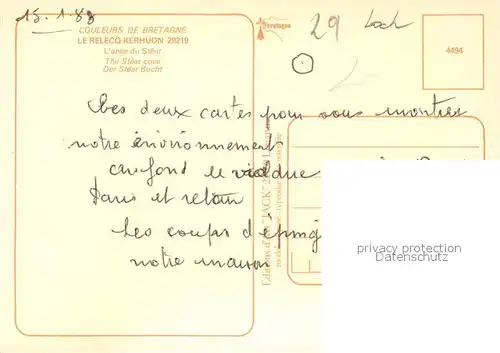 15.1.88
COULEURS DE BRETAGNE
LE RELECQ-KERHUON 29219
L'anse du Stéar
The Stéar cove
Der Stéar Bucht
Bretagne
29
Loch
4494
2
Ces deux cartes pour vous montrer
notre environnement
au fond le viaduc
Paris et retour
Les coups d'éping
notre maison
Editions d'Art "JACK"
privacy protection
Veikkos-archiv.com